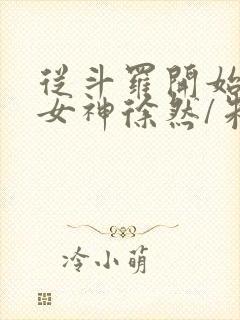 從斗羅開始
女神徐然/朱
冷小萌